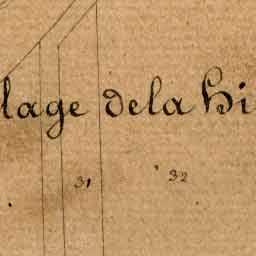 lage dela hi
31 32